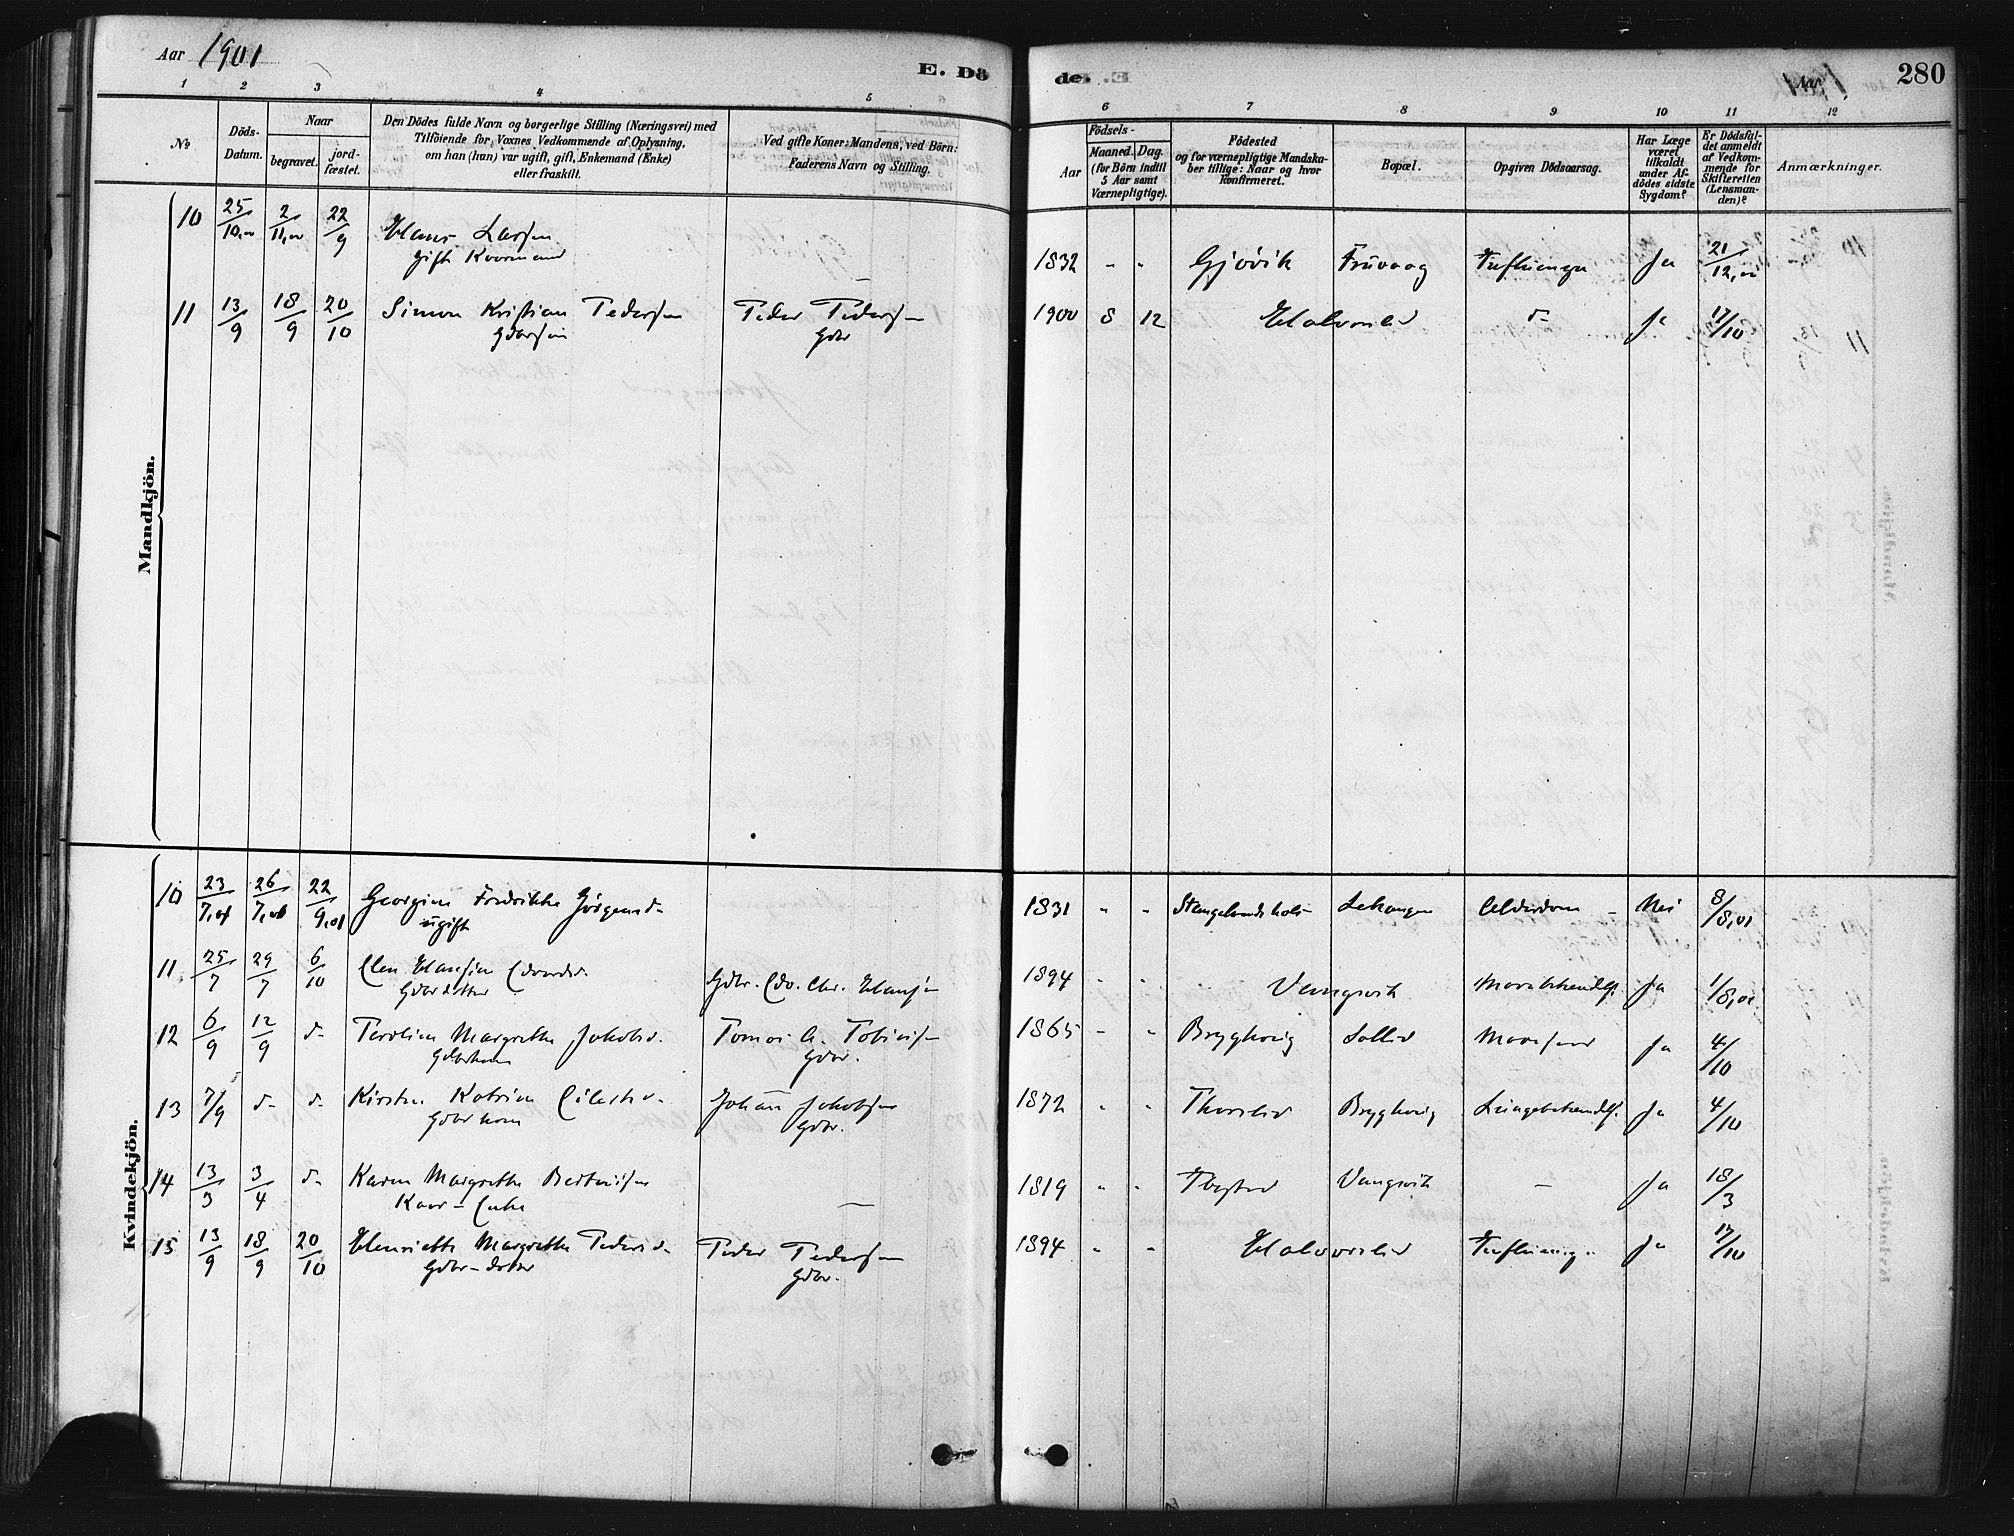 Aar 1901
E. Dö
de.
280
1 2 3 4 5 6 7 8 9 10 11 12
№
Döds-Datum.
Naar
begravet.
jord-fæstet.
Den Dödes fulde Navn og borgerlige Stilling (Næringsvei) med
Tilföiende for Voxnes Vedkommende af Oplysning,
om han (hun) var ugift, gift, Enkemand (Enke)
eller fraskilt.
Ved gifte Koner: Mandens, ved Börn:
Faderens Navn og Stilling.
Födsels-
Aar
Maaned. Dag.
(for Börn indtil
5 Aar samt
Værnepligtige).
Födested
og for værnepligtige Mandska-
ber tillige: Naar og hvor
konfirmeret.
Bopæl.
Opgiven Dödsaarsag.
Har Læge
været
tilkaldt
under Af-
dödes sidste
Sygdom?
Er Dödsfal-
det anmeldt
af Vedkom-
mende for
Skifteretten
(Lensman-
den)?
Anmærkninger.
Mandkjön.
10 25/10,00 2/11,00 22/9 Hans Larsen 1832 " " Gjøvik Fruvaag Influenza Ja 21/12,00
gift Kaarmand —
11 13/9 18/9 20/10 Simon Kristian Pedersen Peder Pedersen 1900 8 12 Halvorslid d- Ja 17/10
Gdbrsøn Gdbr
Kvindekjön.
10 23/7,01 26/7,01 22/9,01 Georgine Fredrikke Jørgensd. 1831 " " Lekangen Alderdom Nei 8/8,01
ugift
11 25/7 29/7 6/10 Elen Hansine Edvardsd. Gdbr. Edv. Chr. Hansen 1894 " " Vangsvik Ja 1/8,01
Gdbrdatter
12 6/9 12/9 d- Margrethe Jakobsd. Tomas A. Tobiasen 1865 " " Bryghaug Sollid Ja 4/10
Gdbrkone Gdbr.
13 7/9 d- d- Kirsten Katrine Eilertsd. Johan Jakobsen 1872 " " Thorslid Bryghaug Lungebetændelse Ja 4/10
Gdbrkone Gdbr.
14 13/3 3/4 d- Karen Margrethe Berteusen — 1819 " " Ibestad Vangsvik — Ja 18/3
Kaar-Enke
15 13/9 18/9 20/10 Henriette Margrethe Pedersd. Peder Pedersen 1894 " " Halvorslid Influenza Ja 17/10
Gdbr-datter Gdbr.